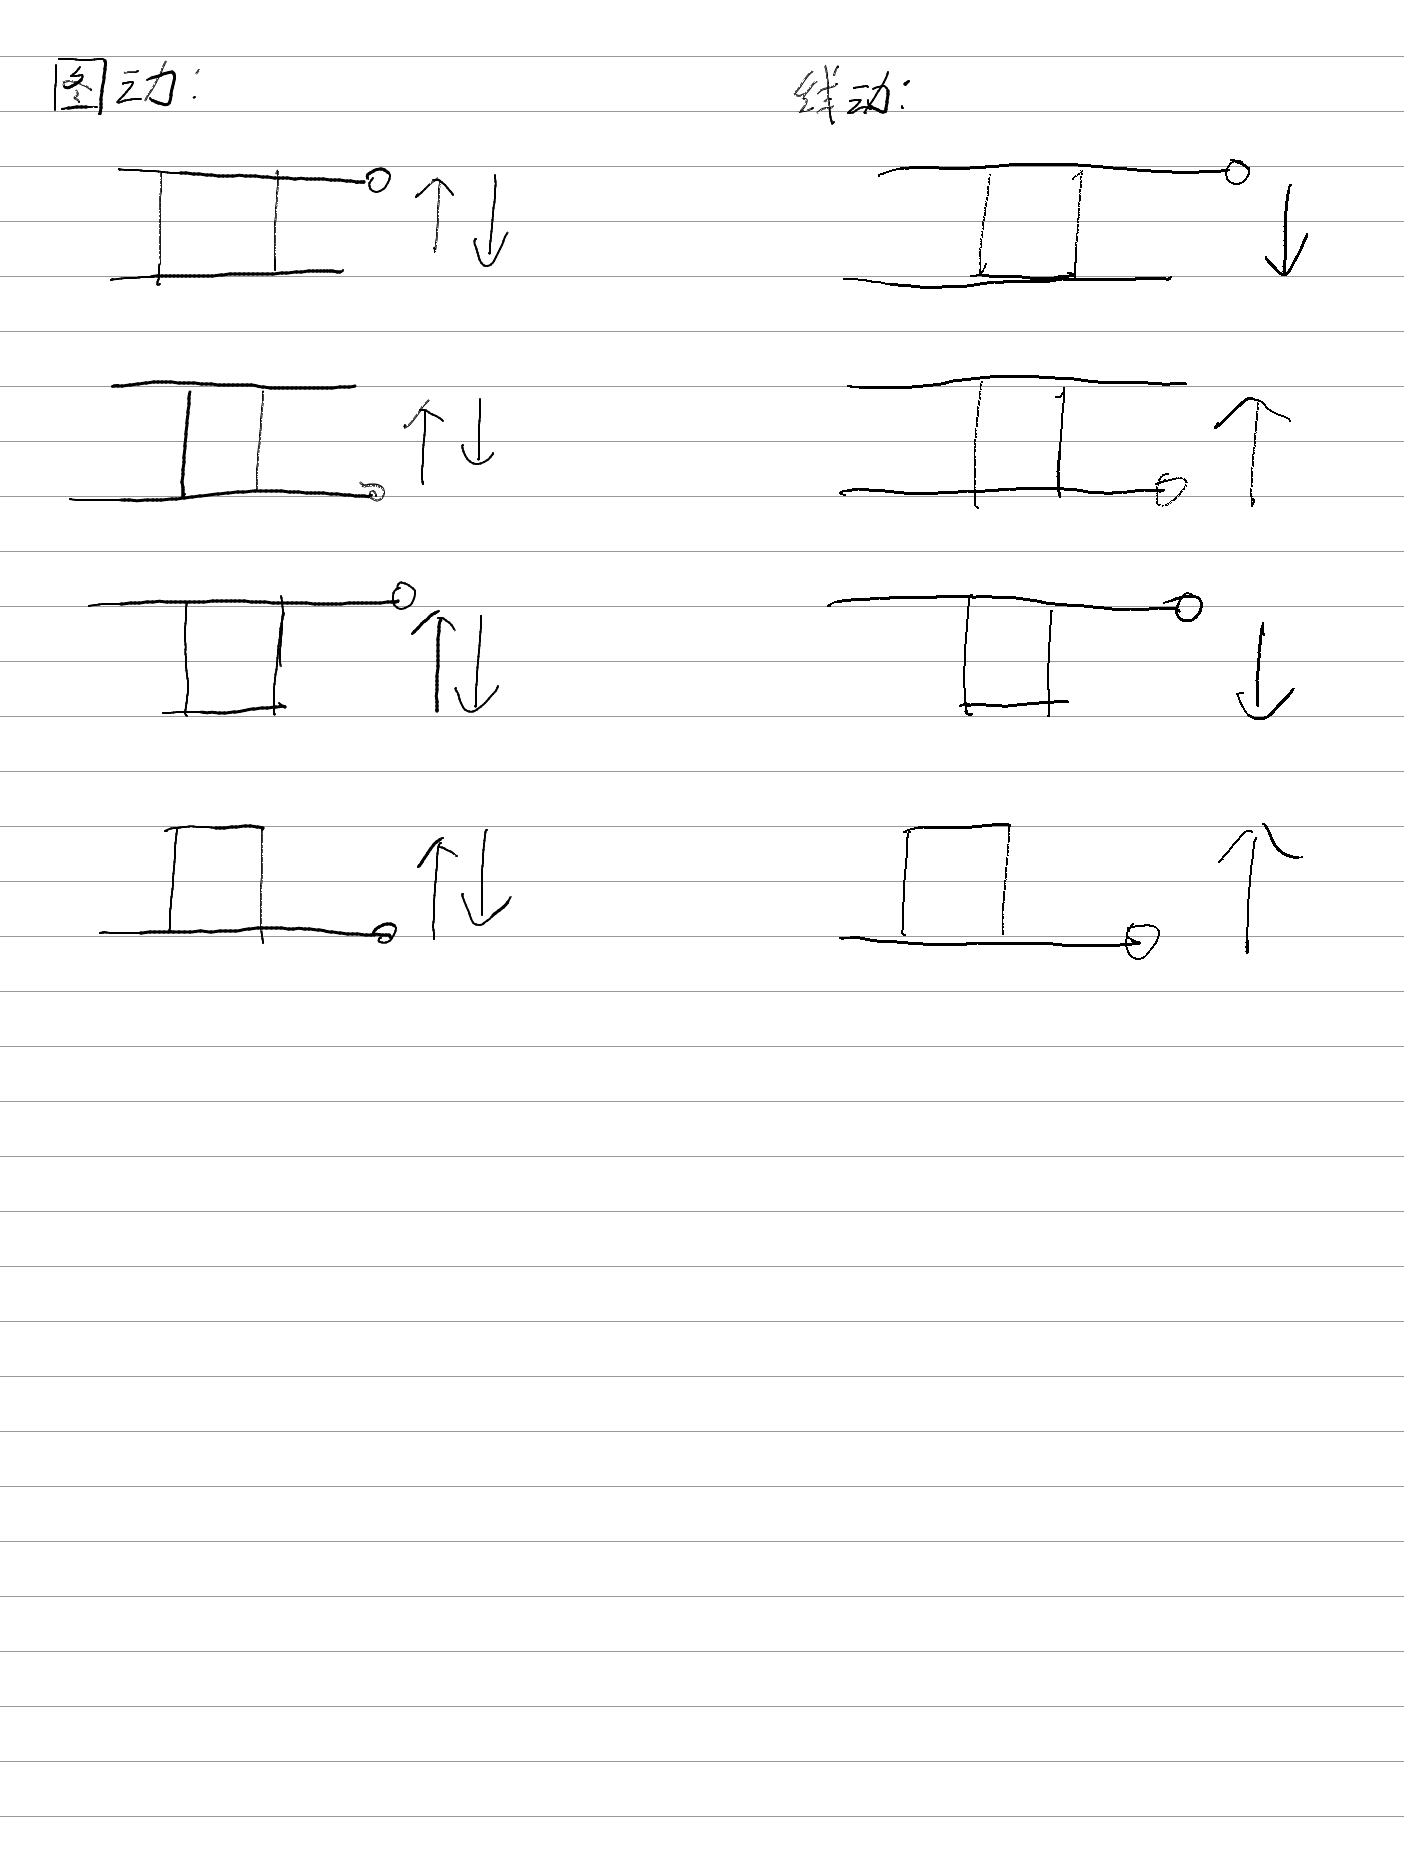 图动:
线动: